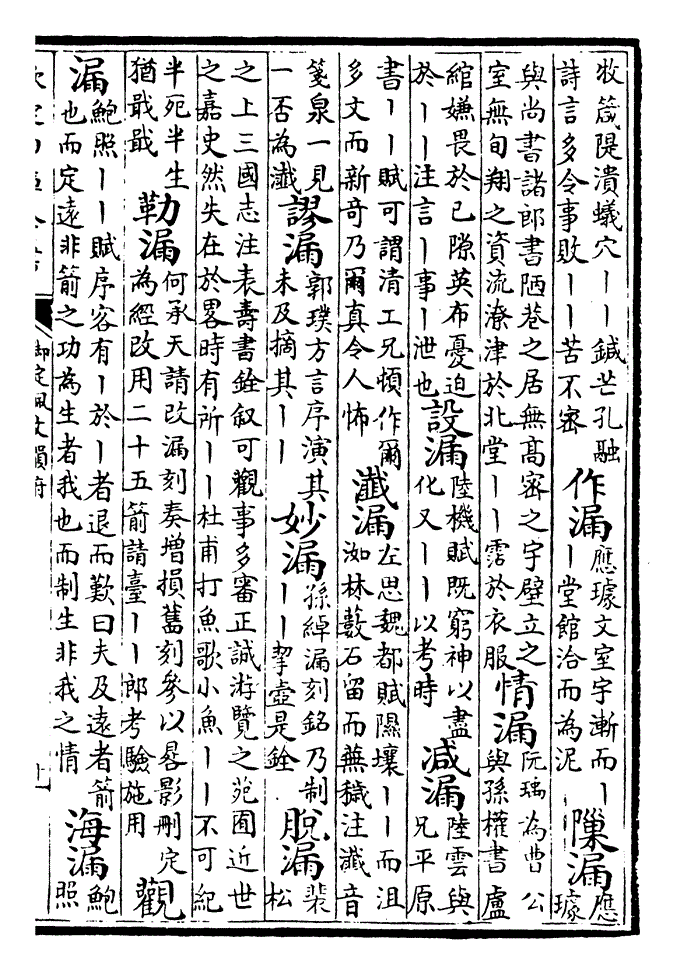 牧箴隄潰蟻穴丨丨鍼芒孔融
詩言多令事敗丨丨苦不宻
作漏
應璩文室宇漸而丨
丨堂館洽而為泥
隟漏
應
璩
與尚書諸郎書陋巷之居無高宻之宇壁立之
室無旬朔之資流潦津於北堂丨丨霑於衣服
情漏
阮瑀為曹公
與孫權書盧
綰嫌畏於已隙英布憂迫
於丨丨注言丨事丨泄也
設漏
陸機賦既窮神以盡
化又丨丨以考時
减漏
陸雲與
兄平原
書丨丨賦可謂清工兄頓作爾
多文而新奇乃爾真令人怖
瀸漏
左思魏都賦隰壤丨丨而沮
洳林藪石留而蕪穢注瀸音
箋泉一見
一否為瀸
謬漏
郭璞方言序演其
未及摘其丨丨
妙漏
孫綽漏刻銘乃制
丨丨挈壺是銓
脱漏
裴
松
之上三國志注表壽書銓叙可觀事多審正誠游覽之苑囿近世
之嘉史然失在於畧時有所丨丨杜甫打魚歌小魚丨丨不可紀
半死半生
猶戢戢
勒漏
何承天請改漏刻奏增損舊刻參以晷影刪定
為經改用二十五箭請臺丨丨郎考驗施用
觀
漏
鮑照丨丨賦序客有丨於丨者退而歎曰夫及遠者箭
也而定遠非箭之功為生者我也而制生非我之情
海漏
鮑
照
御定佩文韻府